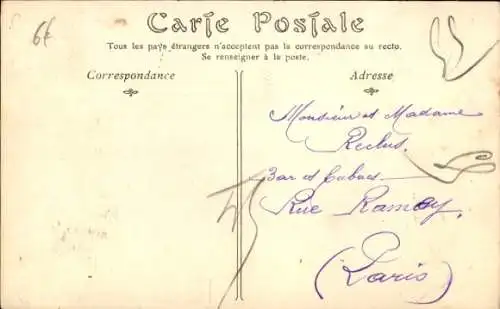 6€
Carte Postale
Tous les pays étrangers n'acceptent pas la correspondance au recto.
Se renseigner à la poste.
Correspondance
Adresse
Monsieur et Madame
Reclus.
Bar et Tabacs
Rue Ramey,
(Paris)